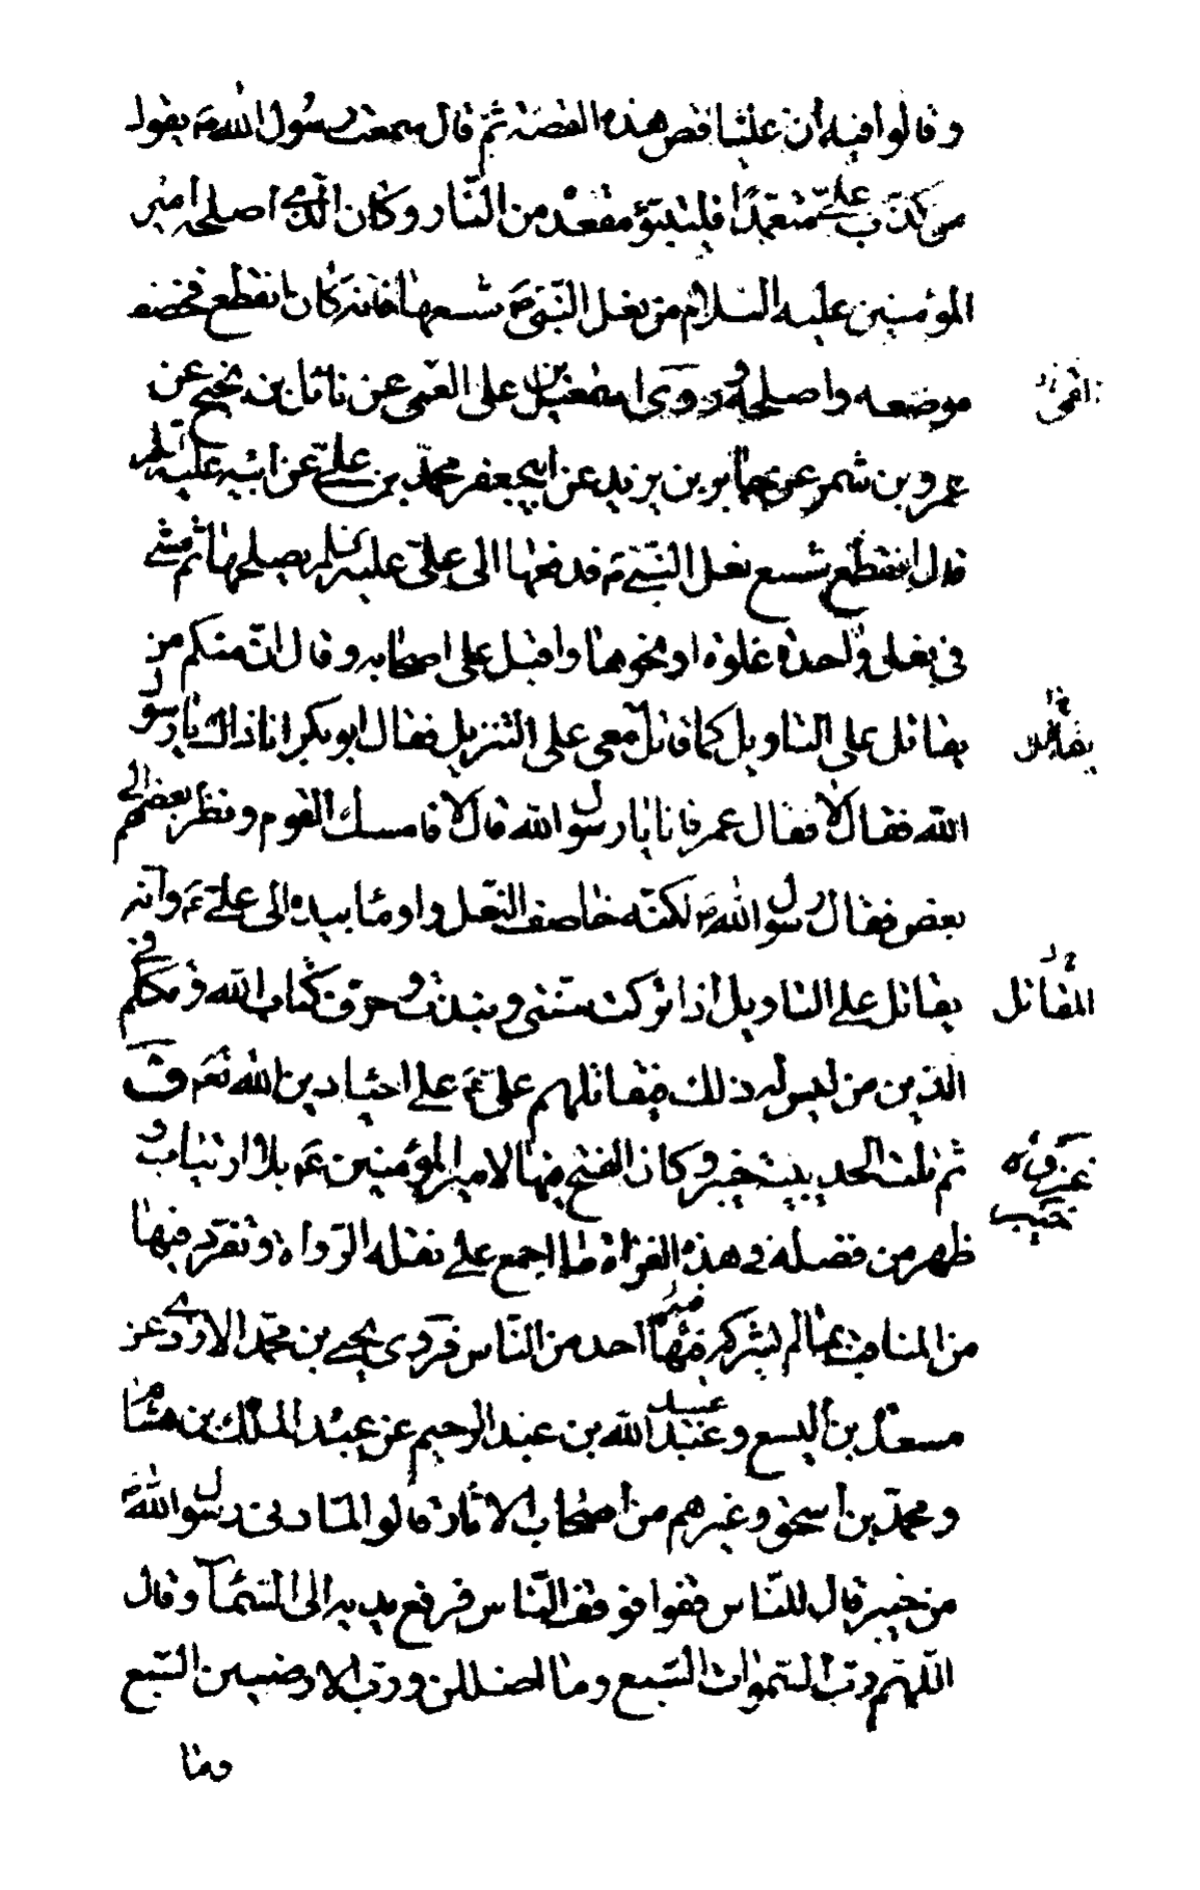 وقالوا فيه أن عليّا قص هذه القصة ثمّ قال سمعت رسول الله ص يقول
من كذب علىّ متعمّدًا فليتبوّء مقعده من النّار وكان الّذي اصلحه امير
المؤمنين عليه السلام من نعل النّبيّ ص شسعها فانّه كان انقطع فخصف
موضعه واصلحه وروى اسمعيل بن على العمى عن نائل بن نجيح عن
عمرو بن شمر عن جابر بن يزيد عن ابيجعفر محمّد بن علىّ عن ابيه عليه السلم
قال انقطع شسع نعل النّبيّ ص فدفعها الى علىّ عليه السلم يصلحها ثم مشى
في نعل واحدة غلوة او نحوها واقبل على اصحابه وقال انّ منكم من
يقاتل على التّاويل كما قاتل معى على التنزيل فقال ابو بكر انا ذاك يا رسول
الله فقال لا فقال عمر فانا يا رسول الله قال لا فامسك القوم ونظر بعضهم الى
بعض فقال رسول الله ص لكنّه خاصف النّعل واومئا بيده الى علىّ ع وانّه
المقاتل
يقاتل على التاويل اذا تركت سنّتى ونبذت وحرّف كتاب الله وتكلّم في
الدّين من ليس له ذلك فيقاتلهم علىّ ع على احياء دين الله تعم فصل
غزوة خيبر
ثم تلت الحديبية خيبر وكان الفتح فيها لامير المؤمنين ع بلا ارتياب و
ظهر من فضله في هذه الغزاة ما اجمع على نقله الرّواة وتفرّد فيها
من المناقب بما لم يشركه فيها احد من النّاس فروى يحيى بن محمّد الازدي عن
مسعدة بن اليسع وعبد الله بن عبد الرحيم عن عبد الملك بن هشام
ومحمّد بن اسحق وغيرهم من أصحاب الاثار قالوا لمّا دنى رسول الله ص
من خيبر قال للنّاس قفوا فوقف النّاس فرفع يديه الى السّماء وقال
اللّهمّ ربّ السّموات السّبع وما اضللن وربّ الارضين السّبع
وما